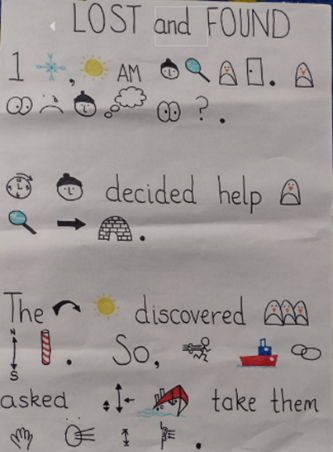 LOST and FOUND
1 , AM .
? .
decided help
.
The discovered
N
S
. So,
asked take them
.